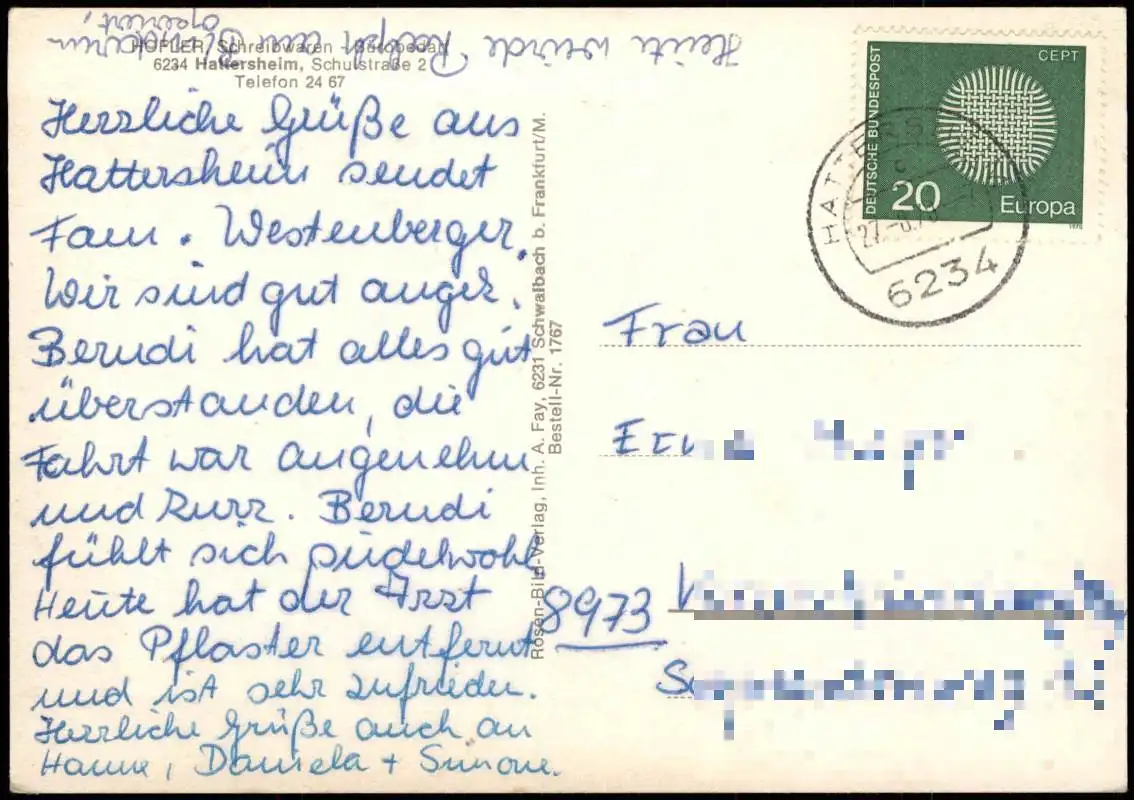 HÖFLER, Schreibwaren - Bürobedarf
6234 Hattersheim, Schulstraße 2
Telefon 24 67
Herzliche Grüße aus
Hattersheim sendet
Fam. Westenberger.
Wir sind gut angek.
Berudi hat alles gut
überstanden, die
Fahrt war angenehm
und kurz. Berudi
fühlt sich pudelwohl
Heute hat der Arzt
das Pflaster entfernt
und ist sehr zufrieden.
Herzliche Grüße auch an
Hanne, Daniela + Simone.
Heute wurde Rudolf am Blinddarm
operiert,
Rosen-Bild-Verlag, Inh. A. Fay, 6231 Schwalbach b. Frankfurt/M.
Bestell-Nr. 1767
DEUTSCHE BUNDESPOST
CEPT
20
Europa
1970
HATTERSHEIM
c
6234
Frau
8973